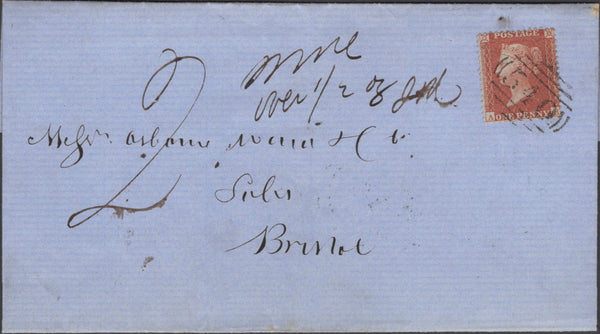 POSTAGE
ONE PENNY
more
over 1/2 oz
2
Messrs Osborne Ward & Co
Solrs
Bristol